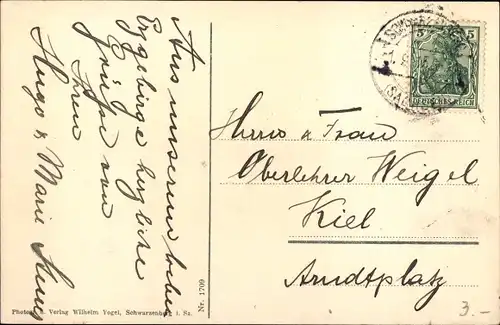 Aus unserem lieben
Erzgebirge herzliche
Grüße von
Ihren
Hugo & Marie
Herrn & Frau
Oberlehrer Weigel
Kiel
Arndtplatz
5 5
DEUTSCHES REICH
Nr. 1709
Photogr. u. Verlag Wilhelm Vogel, Schwarzenberg i. Sa.
3.-